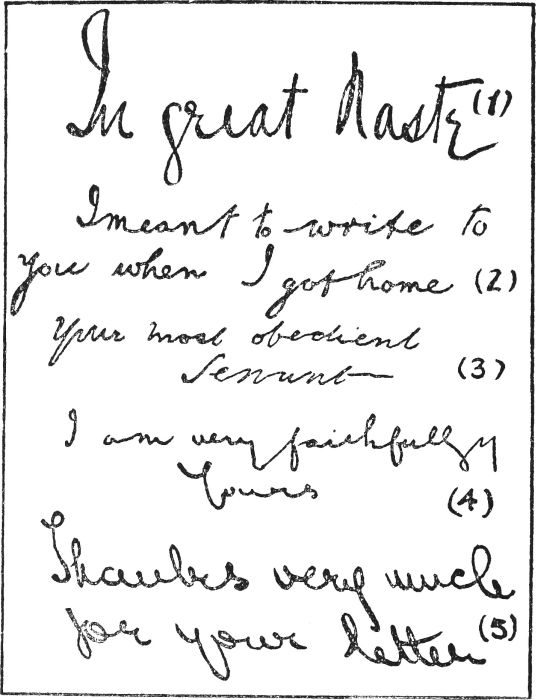 In great haste (1)
I meant to write to
you when I got home (2)
Your most obedient
Servant (3)
I am very faithfully
Yours (4)
Thanks very much
for your letter (5)